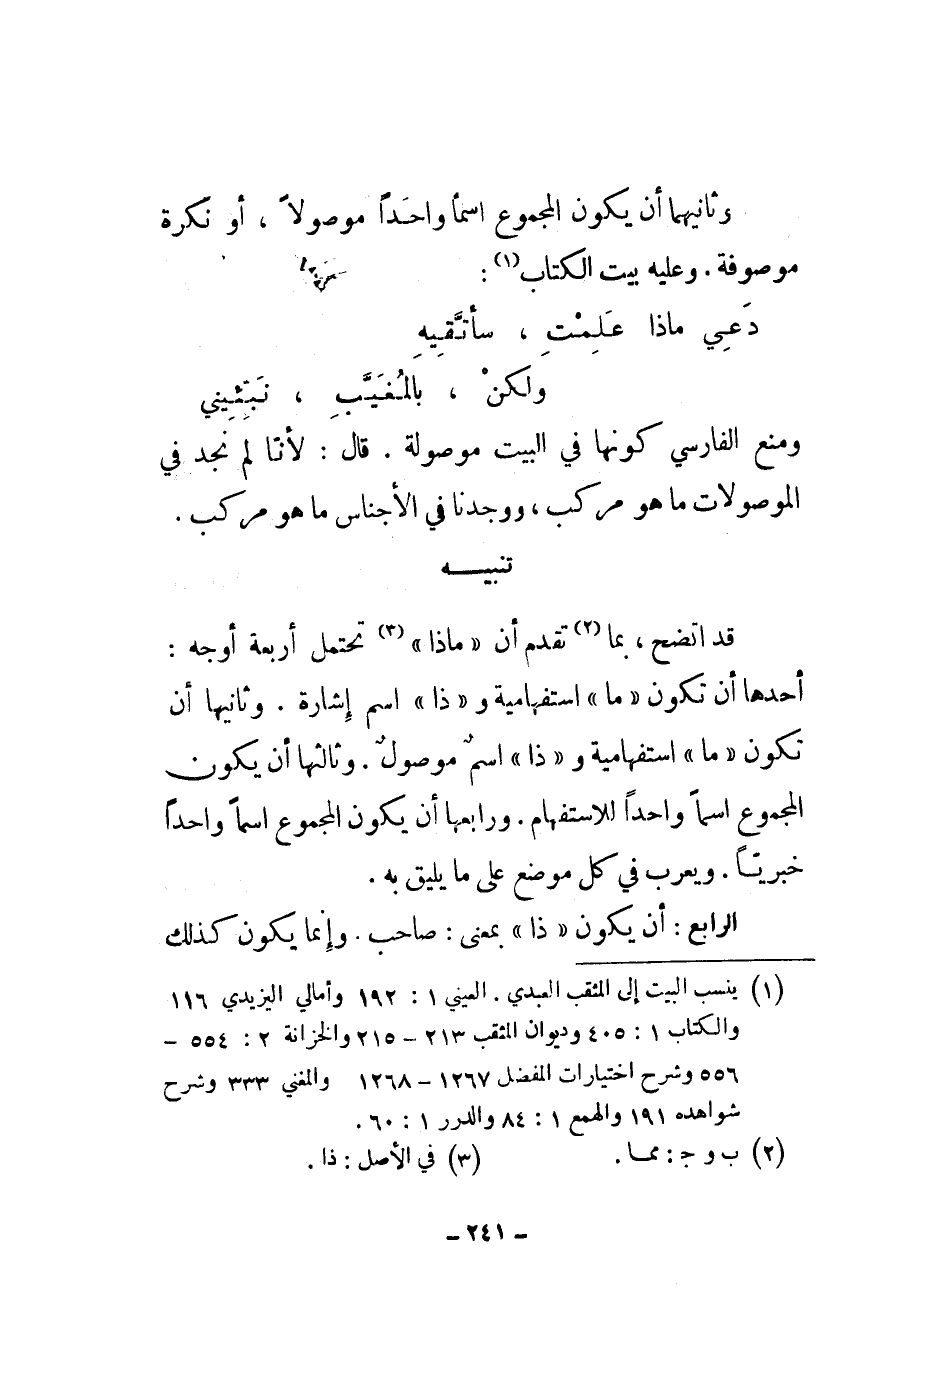 وثانيهما أن يكون المجموع اسماً واحَداً موصولاً ، أو نكرة
موصوفة . وعليه بيت الكتاب(١) :
دَعِي ماذا عَلِمْتِ ، سأتَّقِيهِ
ولكنْ ، بالمُغَيَّبِ ، نَبِّئِيني
ومنع الفارسي كونها في البيت موصولة . قال : لأنّا لم نجد في
الموصولات ما هو مركب ، ووجدنا في الأجناس ما هو مركب .
تنبيــــه
قد اتضح ، بما(٢) تقدم أن « ماذا »(٣) تحتمل أربعة أوجه :
أحدها أن تكون « ما » استفهامية و « ذا » اسم إشارة . وثانيها أن
تكون « ما » استفهامية و « ذا » اسمٌ موصولٌ . وثالثها أن يكون
المجموع اسماً واحداً للاستفهام . ورابعها أن يكون المجموع اسماً واحداً
خبريّـاً . ويعرب في كل موضع على ما يليق به .
الرابع : أن يكون « ذا » بمعنى : صاحب . وإنما يكون كذلك
(١) ينسب البيت إلى المثقب العبدي . العيني ١ : ١٩٢ وأمالي اليزيدي ١١٦
والكتاب ١ : ٤٠٥ وديوان المثقب ٢١٣ – ٢١٥ والخزانة ٢ : ٥٥٤ –
٥٥٦ وشرح اختيارات المفضل ١٢٦٧ – ١٢٦٨ والمغني ٣٣٣ وشرح
شواهده ١٩١ والهمع ١ : ٨٤ والدرر ١ : ٦٠ .
(٢) ب و ج : ممـا . (٣) في الأصل : ذا .
– ٢٤١ –